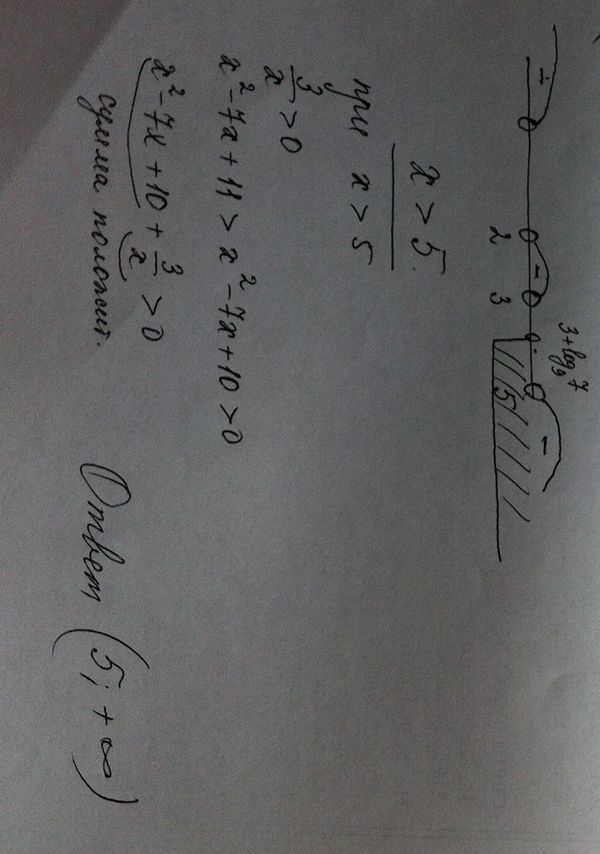 3+log₉7
2 3 5
x > 5.
при x > 5
3/x > 0
x² - 7x + 11 > x² - 7x + 10 > 0
x² - 7x + 10 + 3/x > 0
сумма положит.
Ответ (5; +∞)